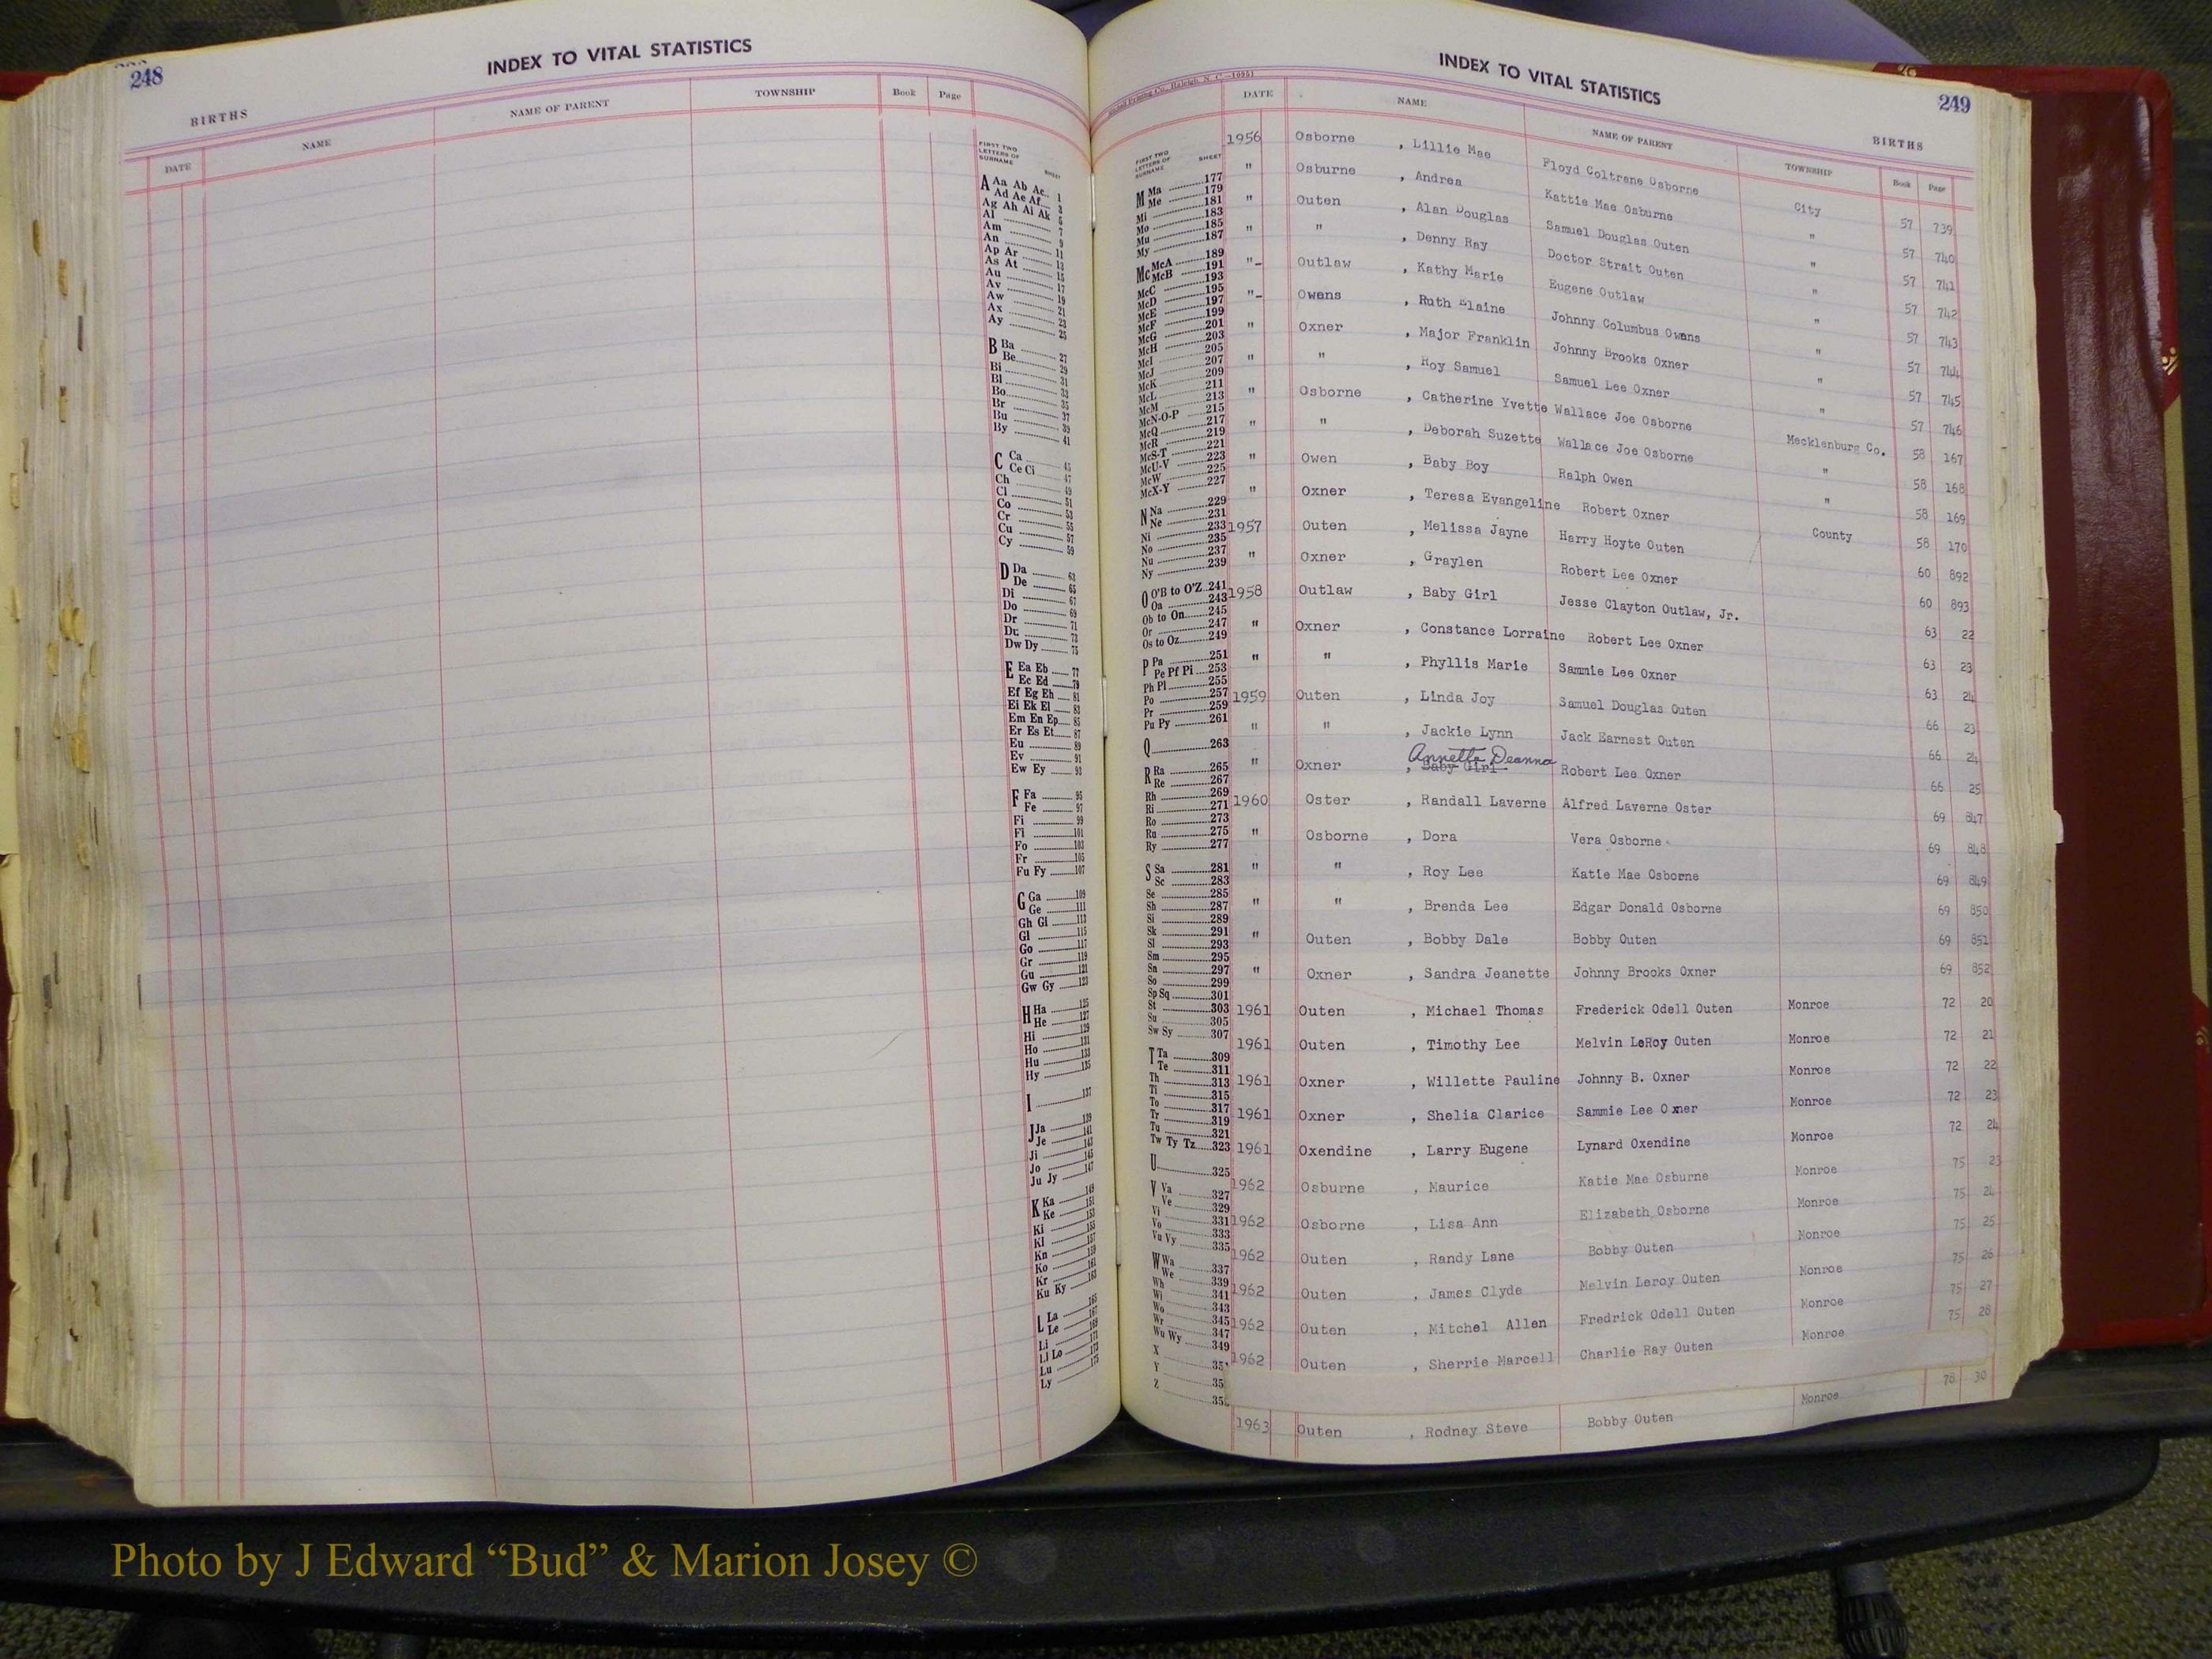 248
INDEX TO VITAL STATISTICS
BIRTHS
DATE NAME NAME OF PARENT TOWNSHIP Book Page
FIRST TWO LETTERS OF SURNAME SHEET
A Aa Ab Ac 1
Ad Ae Af 3
Ag Ah Ai Ak 5
Al 7
Am 9
An 11
Ap Ar 13
As At 15
Au 17
Av 19
Aw 21
Ax 23
Ay 25
B Ba 27
Be 29
Bi 31
Bl 33
Bo 35
Br 37
Bu 39
By 41
C Ca 45
Ce Ci 47
Ch 49
Cl 51
Co 53
Cr 55
Cu 57
Cy 59
D Da 63
De 65
Di 67
Do 69
Dr 71
Du 73
Dw Dy 75
E Ea Eb 77
Ec Ed 79
Ef Eg Eh 81
Ei Ek El 83
Em En Ep 85
Er Es Et 87
Eu 89
Ev 91
Ew Ey 93
F Fa 95
Fe 97
Fi 99
Fl 101
Fo 103
Fr 105
Fu Fy 107
G Ga 109
Ge 111
Gh Gi 113
Gl 115
Go 117
Gr 119
Gu 121
Gw Gy 123
H Ha 125
He 127
Hi 129
Ho 131
Hu 133
Hy 135
I 137
J Ja 139
Je 141
Ji 143
Jo 145
Ju Jy 147
K Ka 149
Ke 151
Ki 153
Kl 155
Kn 157
Ko 159
Kr 161
Ku Ky 163
L La 165
Le 167
Li 169
Ll Lo 171
Lu 173
Ly 175
INDEX TO VITAL STATISTICS
249
BIRTHS
DATE NAME NAME OF PARENT TOWNSHIP Book Page
FIRST TWO LETTERS OF SURNAME SHEET
M Ma 177
Me 179
Mi 181
Mo 183
Mu 185
My 187
Mc McA 189
McB 191
McC 193
McD 195
McE 197
McF 199
McG 201
McH 203
McI 205
McJ 207
McK 209
McL 211
McM 213
McN-O-P 215
McQ 217
McR 219
McS-T 221
McU-V 223
McW 225
McX-Y 227
N Na 229
Ne 231
Ni 233
No 235
Nu 237
Ny 239
O O'B to O'Z 241
Oa 243
Ob to On 245
Or 247
Os to Oz 249
P Pa 251
Pe Pf Pi 253
Ph Pl 255
Po 257
Pr 259
Pu Py 261
Q 263
R Ra 265
Re 267
Rh 269
Ri 271
Ro 273
Ru 275
Ry 277
S Sa 281
Sc 283
Se 285
Sh 287
Si 289
Sk 291
Sl 293
Sm 295
Sn 297
So 299
Sp Sq 301
St 303
Su 305
Sw Sy 307
T Ta 309
Te 311
Th 313
Ti 315
To 317
Tr 319
Tu 321
Tw Ty Tz 323
U 325
V Va 327
Ve 329
Vi 331
Vo 333
Vu Vy 335
W Wa 337
We 339
Wh 341
Wi 343
Wo 345
Wr 347
Wu Wy 349
X 35
Y 35
Z 35
1956 Osborne , Lillie Mae Floyd Coltrane Osborne City 57 739
" Osburne , Andrea Kattie Mae Osburne " 57 740
" Outen , Alan Douglas Samuel Douglas Outen " 57 741
" " , Denny Ray Doctor Strait Outen " 57 742
"- Outlaw , Kathy Marie Eugene Outlaw " 57 743
"- Owens , Ruth Elaine Johnny Columbus Owens " 57 744
" Oxner , Major Franklin Johnny Brooks Oxner " 57 745
" " , Roy Samuel Samuel Lee Oxner " 57 746
" Osborne , Catherine Yvette Wallace Joe Osborne Mecklenburg Co. 58 167
" " , Deborah Suzette Wallace Joe Osborne " 58 168
" Owen , Baby Boy Ralph Owen " 58 169
" Oxner , Teresa Evangeline Robert Oxner County 58 170
1957 Outen , Melissa Jayne Harry Hoyte Outen 60 892
" Oxner , Graylen Robert Lee Oxner 60 893
1958 Outlaw , Baby Girl Jesse Clayton Outlaw, Jr. 63 22
" Oxner , Constance Lorraine Robert Lee Oxner 63 23
" " , Phyllis Marie Sammie Lee Oxner 63 24
1959 Outen , Linda Joy Samuel Douglas Outen 66 23
" " , Jackie Lynn Jack Earnest Outen 66 24
Annette Deanna
" Oxner , Baby Girl Robert Lee Oxner 66 25
1960 Oster , Randall Laverne Alfred Laverne Oster 69 847
" Osborne , Dora Vera Osborne 69 848
" " , Roy Lee Katie Mae Osborne 69 849
" " , Brenda Lee Edgar Donald Osborne 69 850
" Outen , Bobby Dale Bobby Outen 69 851
" Oxner , Sandra Jeanette Johnny Brooks Oxner 69 852
1961 Outen , Michael Thomas Frederick Odell Outen Monroe 72 20
1961 Outen , Timothy Lee Melvin LeRoy Outen Monroe 72 21
1961 Oxner , Willette Pauline Johnny B. Oxner Monroe 72 22
1961 Oxner , Shelia Clarice Sammie Lee Oxner Monroe 72 23
1961 Oxendine , Larry Eugene Lynard Oxendine Monroe 72 24
1962 Osburne , Maurice Katie Mae Osburne Monroe 75 23
1962 Osborne , Lisa Ann Elizabeth Osborne Monroe 75 24
1962 Outen , Randy Lane Bobby Outen Monroe 75 25
1962 Outen , James Clyde Melvin Leroy Outen Monroe 75 26
1962 Outen , Mitchel Allen Fredrick Odell Outen Monroe 75 27
1962 Outen , Sherrie Marcell Charlie Ray Outen Monroe 75 28
1963 Outen , Rodney Steve Bobby Outen Monroe 78 30
Photo by J Edward “Bud” & Marion Josey ©